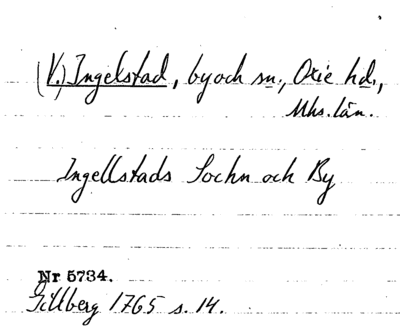 (V.) Ingelstad, by och sn., Oxie hd.,
Mhs. län.
Ingellstads Sochn och By
Nr 5734.
Gillberg 1765 s. 14.